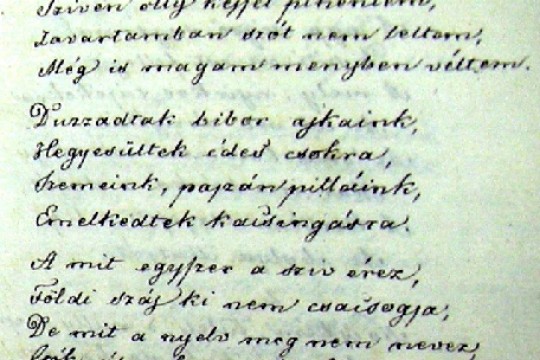 Sziven oily kéjjel pihentem,
Zavartamban szót nem leltem,
Még is magam menyben véltem.
Duzzadtak bibor ajkaink,
Hegyesültek édes csokra,
Szemeink, pajzán pilláink,
Emelkedtek kacsingásra.
A mit egyszer a sziv érez,
Földi száj ki nem csacsogja,
De mit a nyelv meg nem nevez,